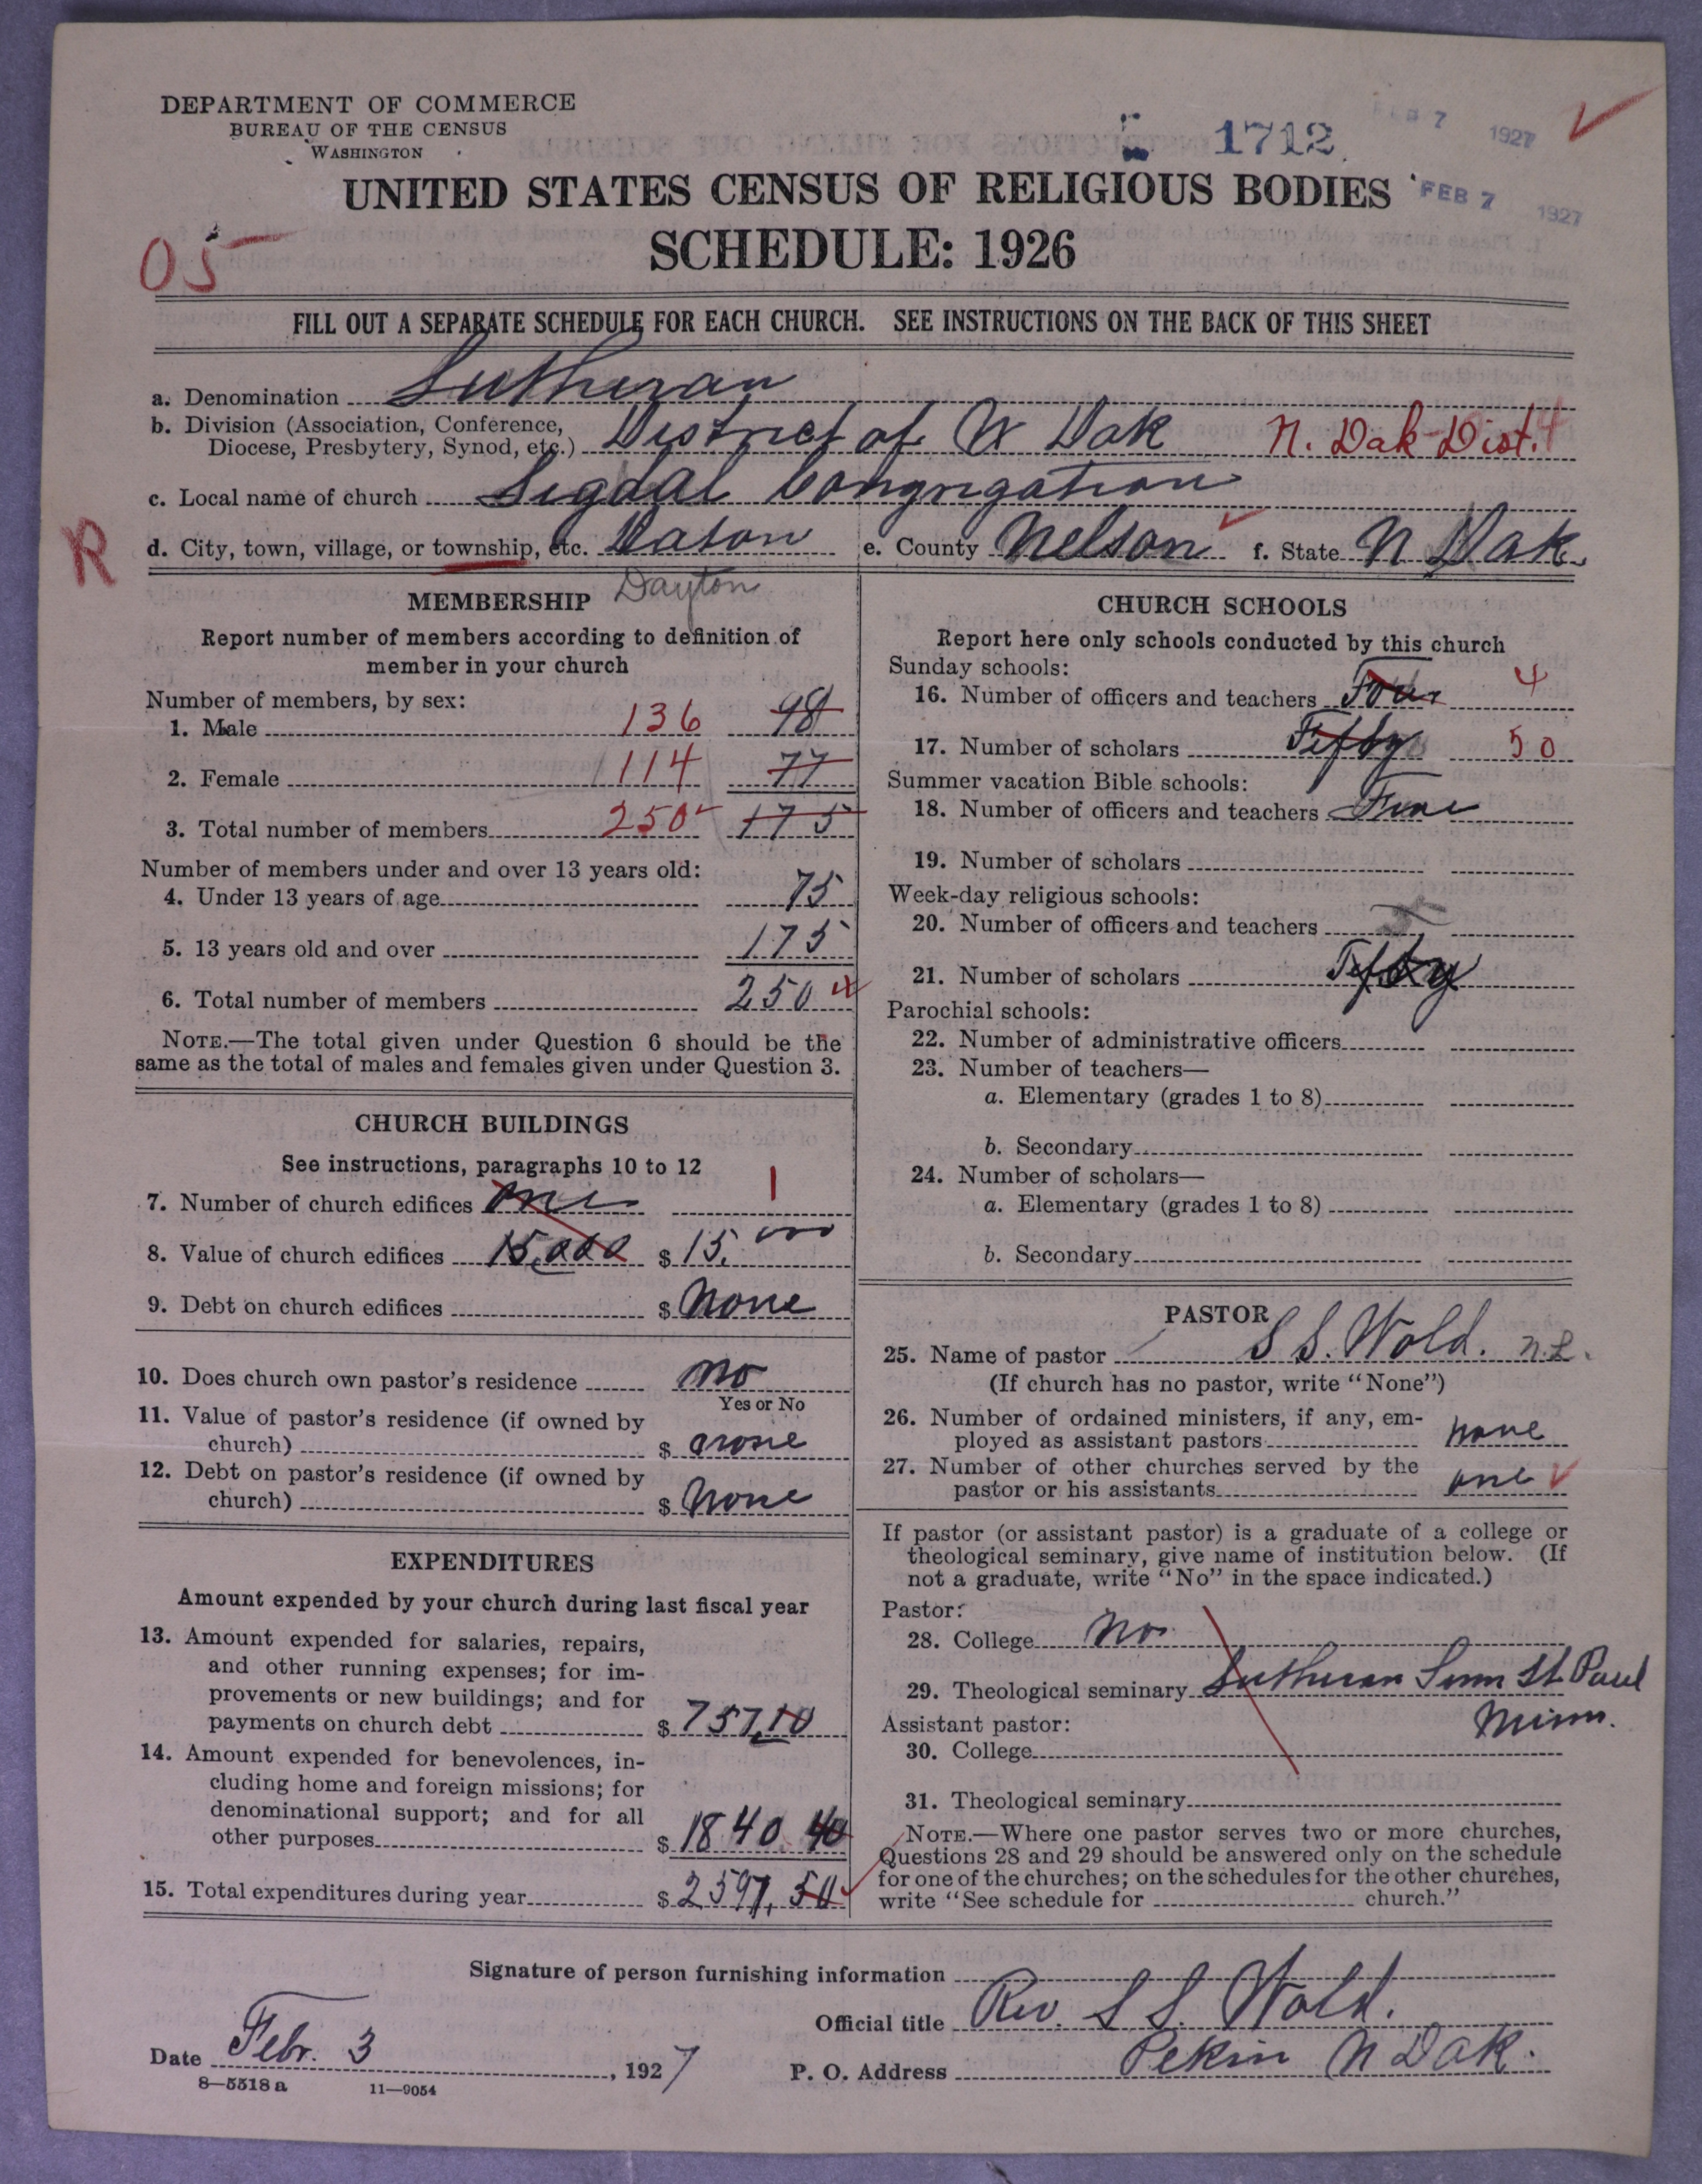 DEPARTMENT OF COMMERCE
BUREAU OF THE CENSUS
WASHINGTON
1712
FEB 7 1927
UNITED STATES CENSUS OF RELIGIOUS BODIES
FEB 7 1927
SCHEDULE: 1926
05
FILL OUT A SEPARATE SCHEDULE FOR EACH CHURCH. SEE INSTRUCTIONS ON THE BACK OF THIS SHEET
a. Denomination Lutheran
b. Division (Association, Conference,
Diocese, Presbytery, Synod, etc.) District of N Dak N. Dak Dist. 4
c. Local name of church Sigdal Congregation
R
d. City, town, village, or township, etc. Daton e. County Nelson f. State N Dak.
Dayton
MEMBERSHIP
Report number of members according to definition of
member in your church
Number of members, by sex:
1. Male 136 98
2. Female 114 77
3. Total number of members 250 175
Number of members under and over 13 years old:
4. Under 13 years of age 75
5. 13 years old and over 175
6. Total number of members 250
NOTE.—The total given under Question 6 should be the
same as the total of males and females given under Question 3.
CHURCH BUILDINGS
See instructions, paragraphs 10 to 12
7. Number of church edifices one 1
8. Value of church edifices 15,000 $ 15,000
9. Debt on church edifices $ None
10. Does church own pastor's residence no
Yes or No
11. Value of pastor's residence (if owned by
church) $ none
12. Debt on pastor's residence (if owned by
church) $ None
EXPENDITURES
Amount expended by your church during last fiscal year
13. Amount expended for salaries, repairs,
and other running expenses; for im-
provements or new buildings; and for
payments on church debt $ 757.10
14. Amount expended for benevolences, in-
cluding home and foreign missions; for
denominational support; and for all
other purposes $ 1840.40
15. Total expenditures during year $ 2597.50
CHURCH SCHOOLS
Report here only schools conducted by this church
Sunday schools:
16. Number of officers and teachers Four 4
17. Number of scholars Fifty 50
Summer vacation Bible schools:
18. Number of officers and teachers
19. Number of scholars
Week-day religious schools:
20. Number of officers and teachers
21. Number of scholars Fifty
Parochial schools:
22. Number of administrative officers
23. Number of teachers—
a. Elementary (grades 1 to 8)
b. Secondary
24. Number of scholars—
a. Elementary (grades 1 to 8)
b. Secondary
PASTOR
25. Name of pastor S S. Wold. n.L.
(If church has no pastor, write "None")
26. Number of ordained ministers, if any, em-
ployed as assistant pastors none
27. Number of other churches served by the
pastor or his assistants one
If pastor (or assistant pastor) is a graduate of a college or
theological seminary, give name of institution below. (If
not a graduate, write "No" in the space indicated.)
Pastor:
28. College No
29. Theological seminary Lutheran Sem St. Paul
Minn.
Assistant pastor:
30. College
31. Theological seminary
NOTE.—Where one pastor serves two or more churches,
Questions 28 and 29 should be answered only on the schedule
for one of the churches; on the schedules for the other churches,
write "See schedule for church."
Signature of person furnishing information
Official title Rev. S S. Wold.
Date Febr. 3, 1927
P. O. Address Pekin N Dak.
8—5518 a 11—9054